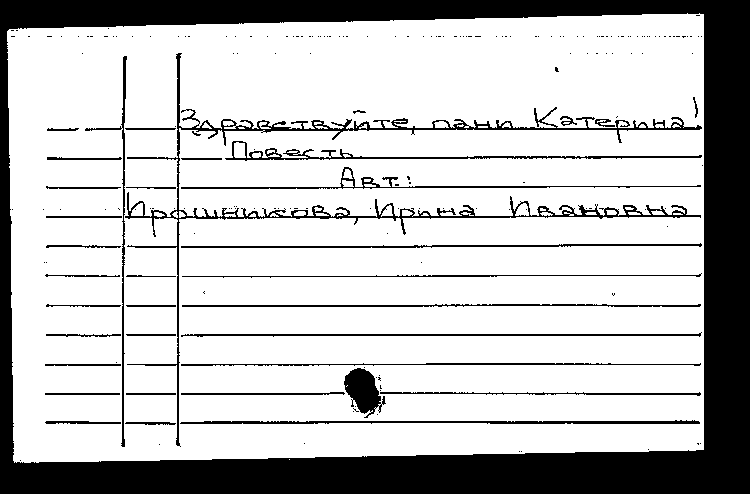 Здравствуйте, пани Катерина!
Повесть.
Авт.:
Ирошникова, Ирина Ивановна